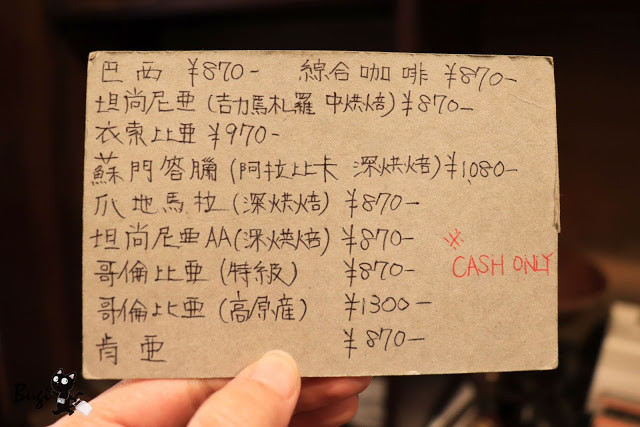 巴西 ¥870- 綜合咖啡 ¥870-
坦尚尼亜 (吉力馬札羅 中烘焙) ¥870-
衣索比亜 ¥970-
蘇門答臘 (阿拉比卡 深烘焙) ¥1,080-
爪地馬拉 (深烘焙) ¥870-
坦尚尼亜AA (深烘焙) ¥870-
※
CASH ONLY
哥倫比亜 (特級) ¥870-
哥倫比亜 (高原産) ¥1300-
肯亜 ¥870-
Bugi